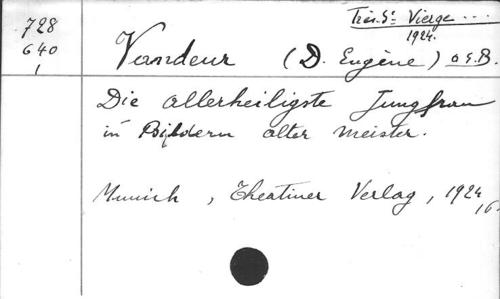 728
640
1
Très Ste Vierge ...
1924.
Vandeur (D. Eugène) O.S.B.
Die allerheiligste Jungfrau
in Bildern alter Meister.
Munich, Theatiner Verlag, 1924,
16.